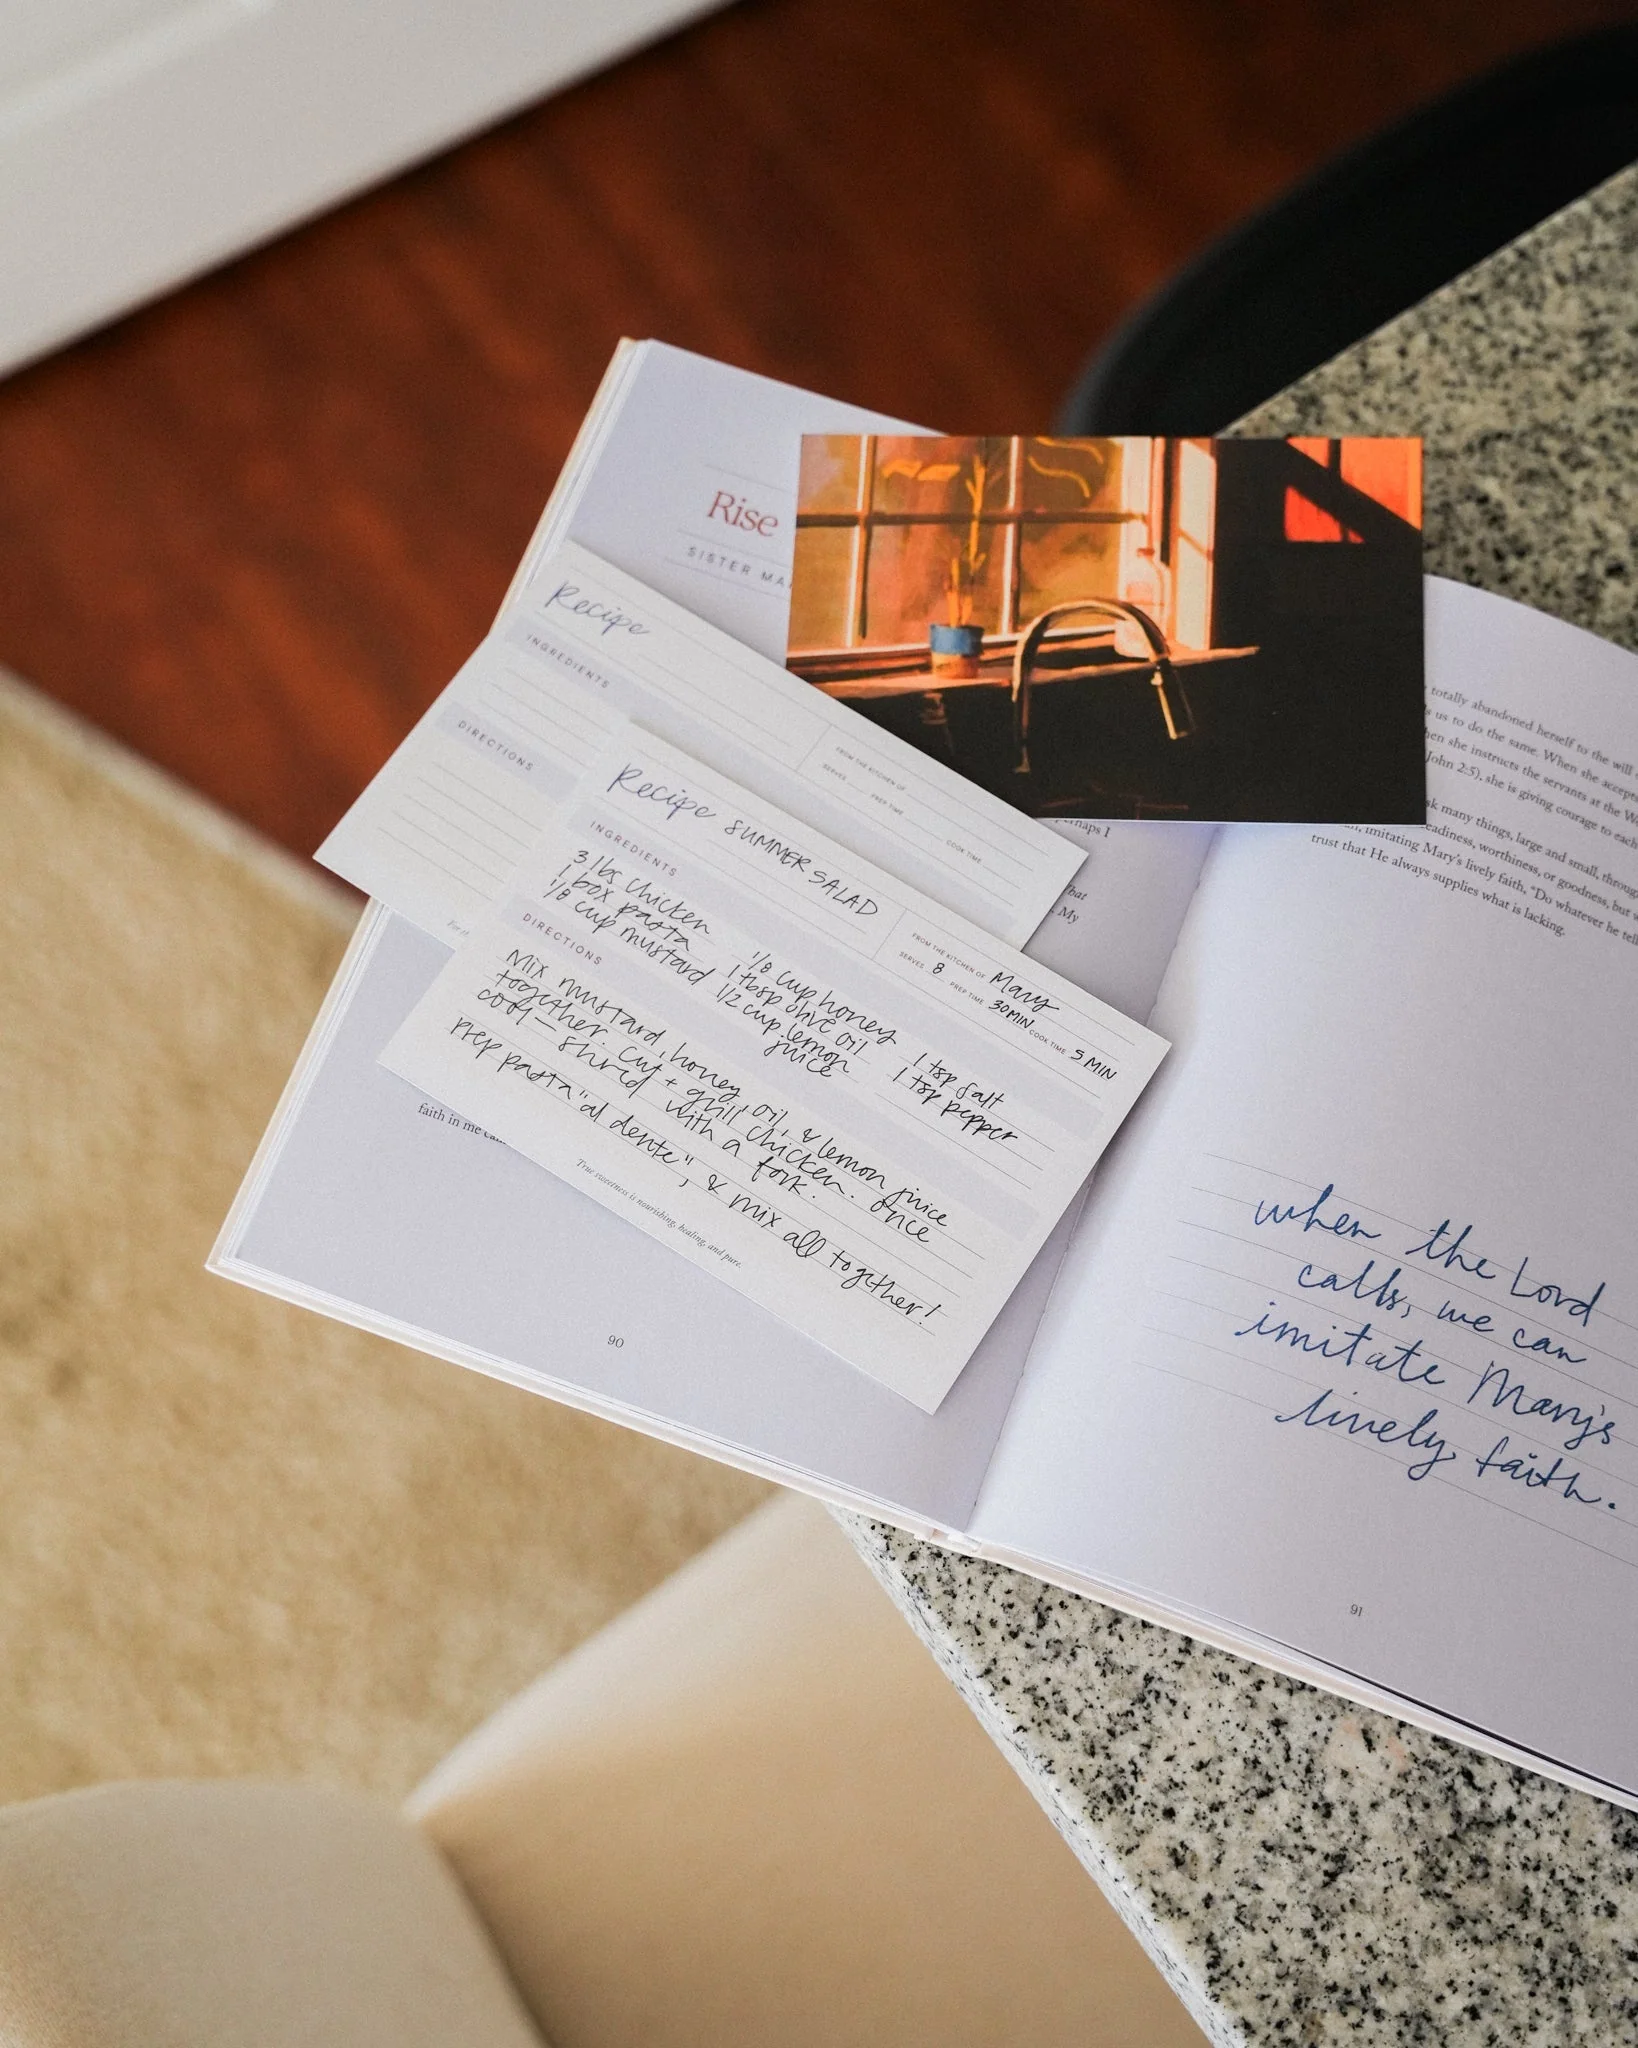 Rise
SISTER MA
Recipe
INGREDIENTS
DIRECTIONS
FROM THE KITCHEN OF
SERVES
PREP TIME
COOK TIME
Recipe SUMMER SALAD
FROM THE KITCHEN OF Mary
SERVES 8 PREP TIME 30 MIN COOK TIME 5 MIN
INGREDIENTS
3 lbs chicken 1/8 cup honey 1 tsp salt
1 box pasta 1 tbsp olive oil 1 tsp pepper
1/8 cup mustard 1/2 cup lemon
juice
DIRECTIONS
Mix mustard, honey, oil, & lemon juice
together. Cut + grill chicken. once
cool— shred with a fork.
prep pasta "al dente", & mix all together!
True sweetness is nourishing, healing, and pure.
perhaps I
That
My
faith in me
90
totally abandoned herself to the will
us to do the same. When she accepts
she instructs the servants at the
John 2:5), she is giving courage to each
many things, large and small, throug
imitating Mary's lively faith, "Do whatever he tell
eadiness, worthiness, or goodness, but
trust that He always supplies what is lacking.
when the Lord
calls, we can
imitate Mary's
lively faith.
91